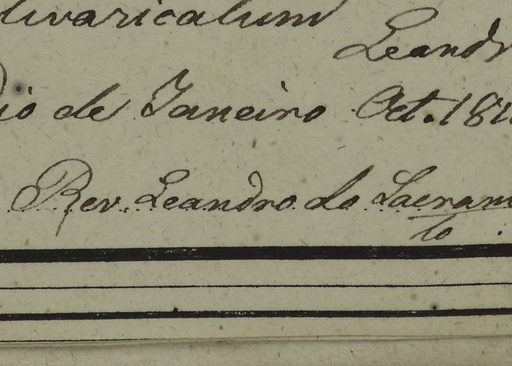 divaricatum
Leandr
io de Janeiro Oct. 181
Rev. Leandro do Sacram
to.